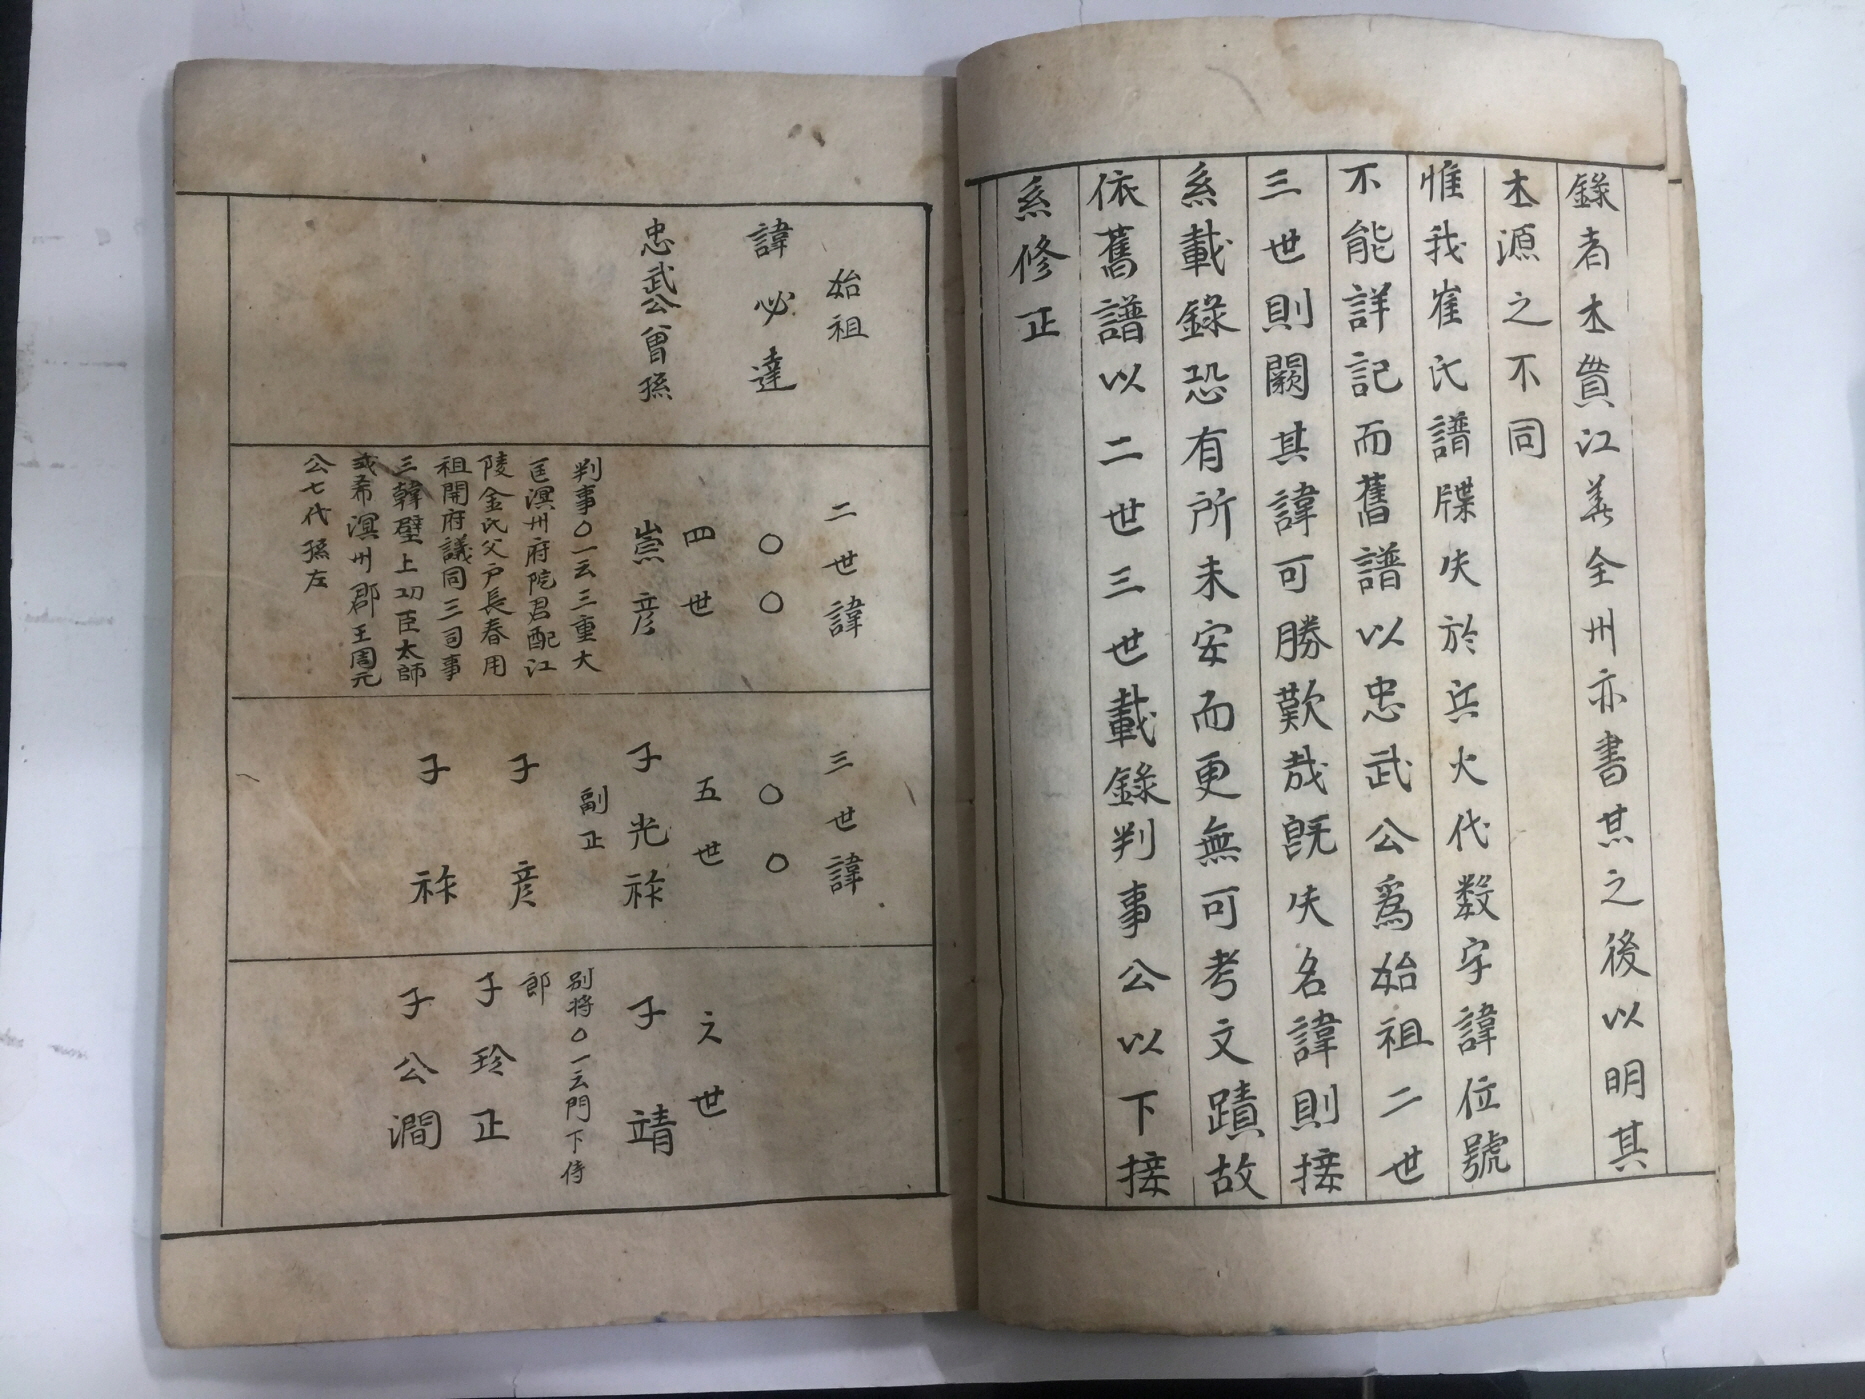 錄者本貫江華全州亦書其之後以明其
本源之不同
惟我崔氏譜牒失於兵火代数字諱位號
不能詳記而舊譜以忠武公爲始祖二世
三世則闕其諱可勝歎哉旣失名諱則接
系載錄恐有所未安而更無可考文蹟故
依舊譜以二世三世載錄判事公以下接
系修正
始祖
諱必達
忠武公曾孫
二世諱
〇〇
四世
崇彦
判事〇一云三重大
匡溟州府院君配江
陵金氏父戶長春用
祖開府議同三司事
三韓壁上功臣太師
或希溟州郡王周元
公七代孫左
三世諱
〇〇
五世
子光祚
副正
子彦
子祚
六世
子靖
別将〇一云門下侍
郎
子玲正
子公澗